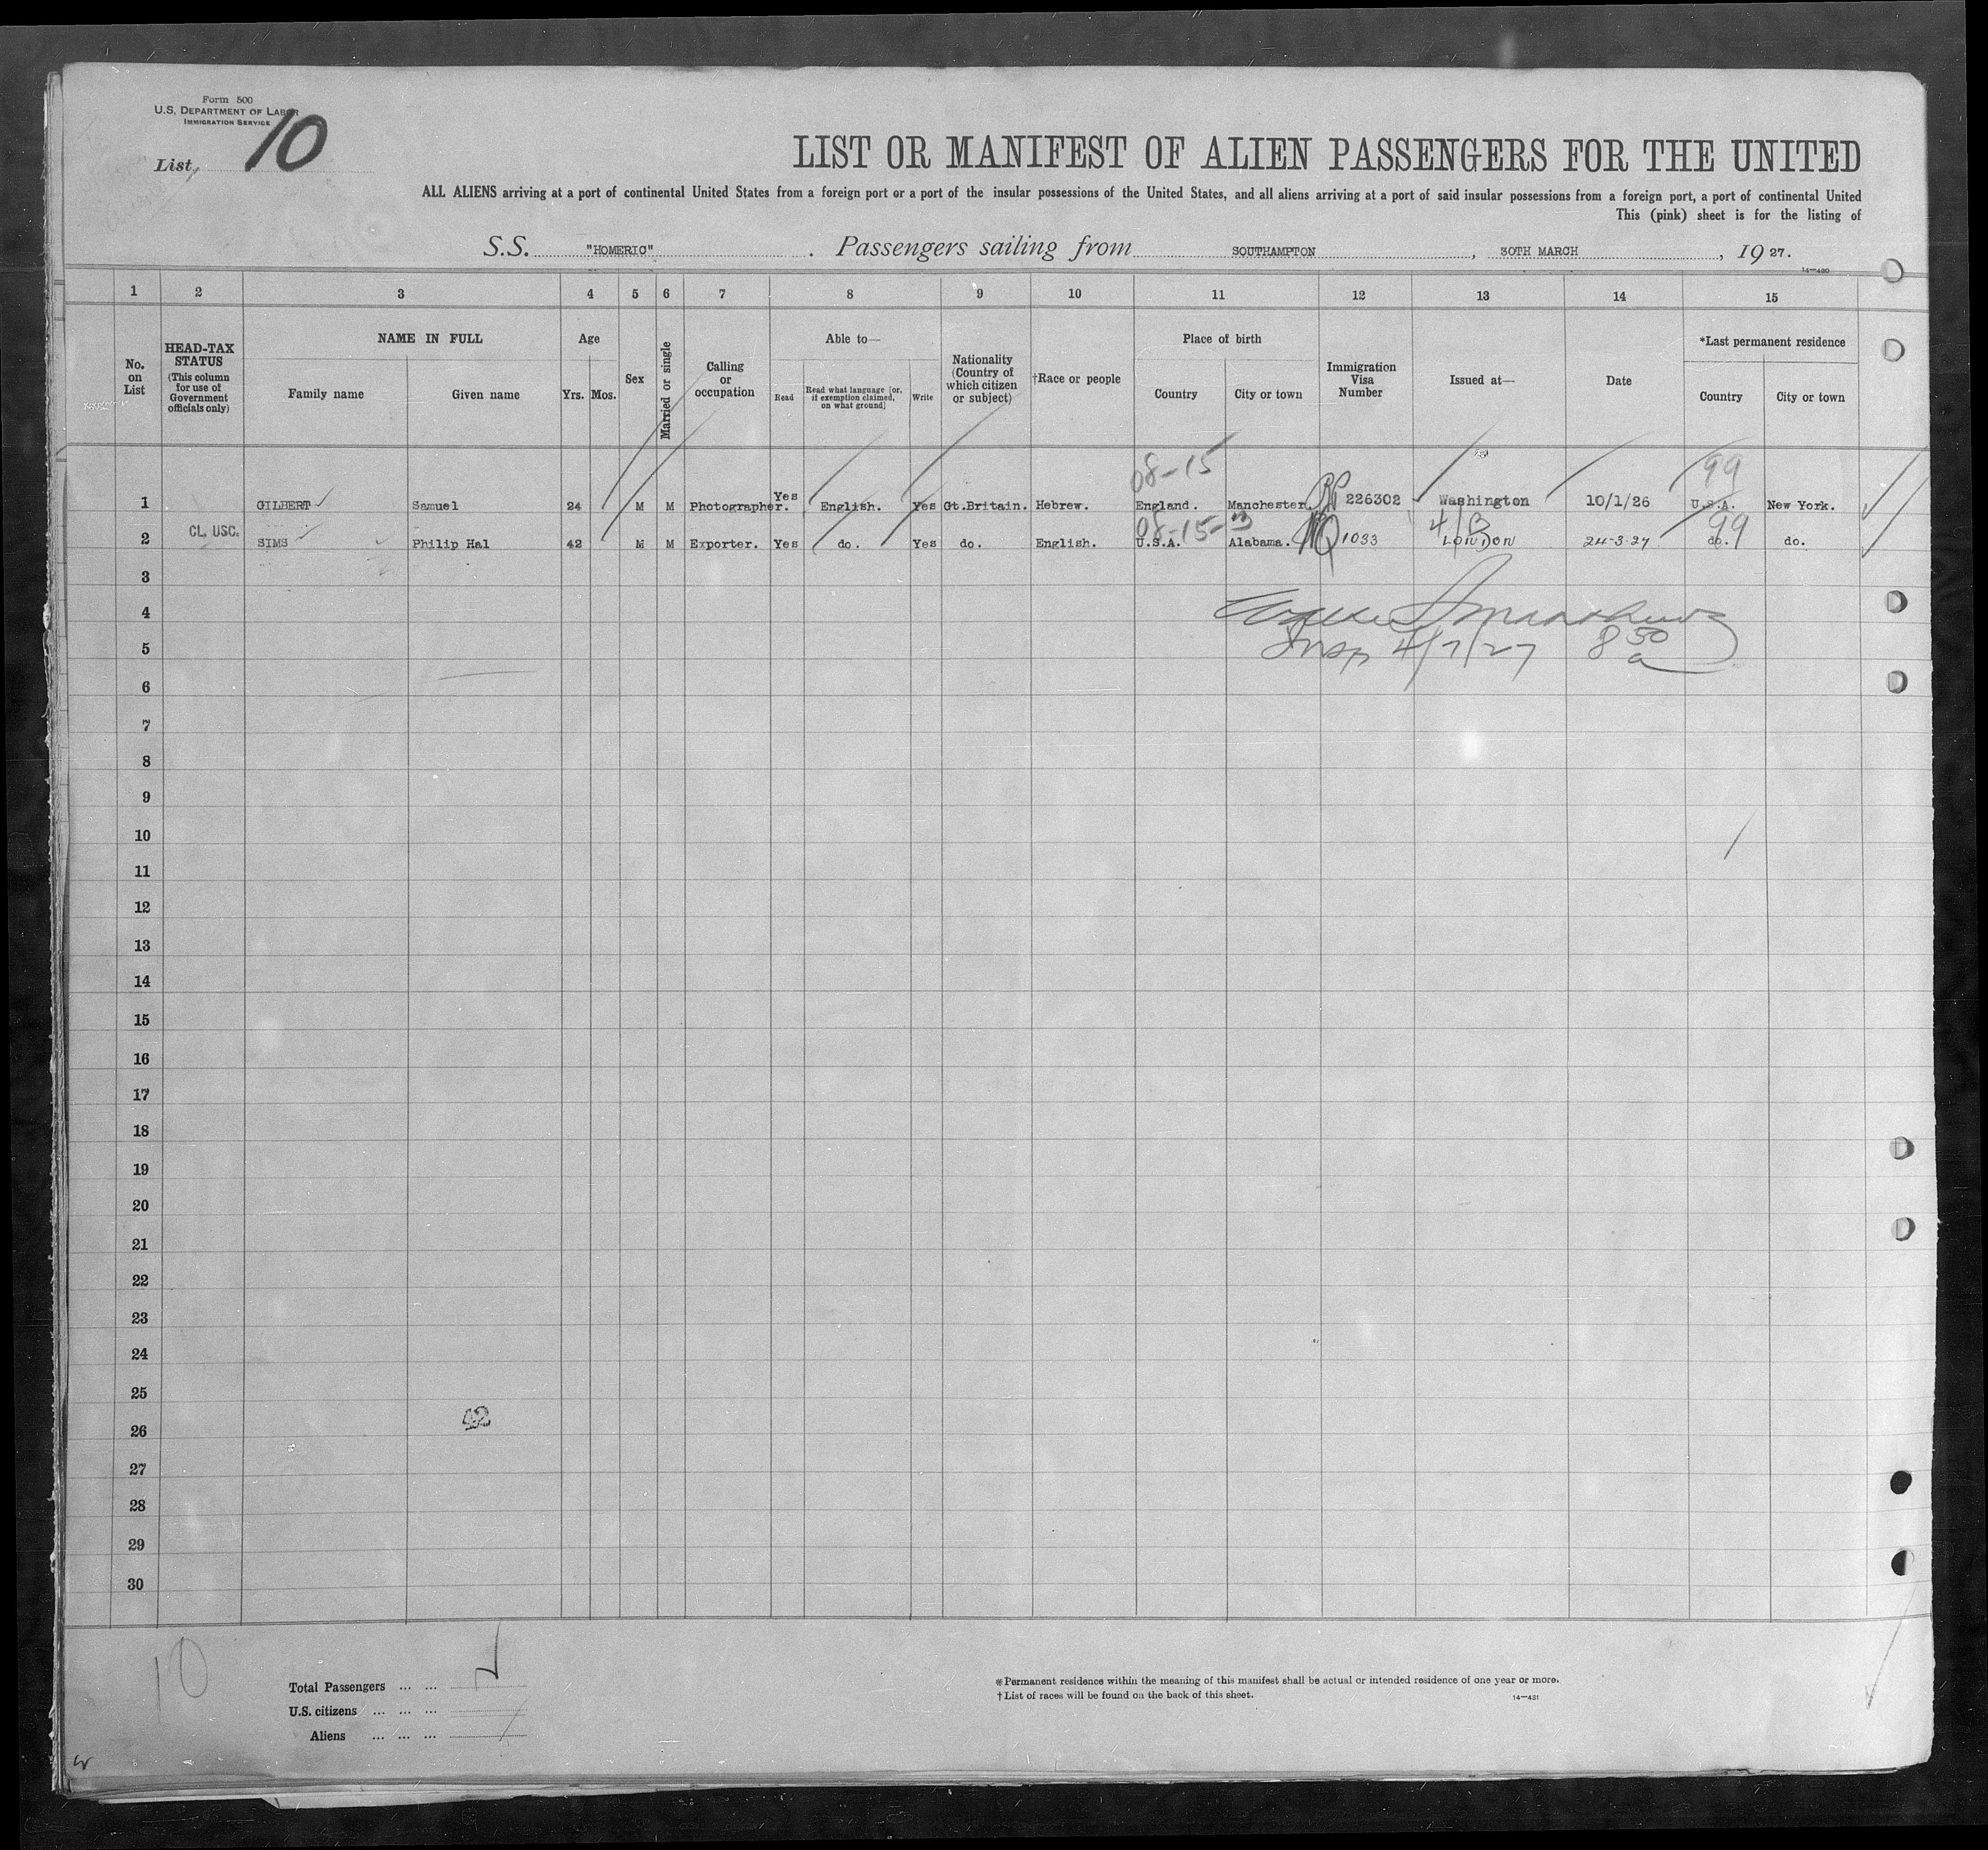 Form 500
U.S. DEPARTMENT OF LABOR
IMMIGRATION SERVICE
List, 10
LIST OR MANIFEST OF ALIEN PASSENGERS FOR THE UNITED
ALL ALIENS arriving at a port of continental United States from a foreign port or a port of the insular possessions of the United States, and all aliens arriving at a port of said insular possessions from a foreign port, a port of continental United
This (pink) sheet is for the listing of
S.S. "HOMERIC" . Passengers sailing from SOUTHAMPTON , 30TH MARCH , 1927.
14-430
1 2 3 4 5 6 7 8 9 10 11 12 13 14 15
No. on List
HEAD-TAX STATUS (This column for use of Government officials only)
NAME IN FULL
Family name Given name
Age
Yrs. Mos.
Sex
Married or single
Calling or occupation
Able to—
Read Read what language [or, if exemption claimed, on what ground] Write
Nationality (Country of which citizen or subject)
†Race or people
Place of birth
Country City or town
Immigration Visa Number
Issued at—
Date
*Last permanent residence
Country City or town
08-15 99
1 GILBERT Samuel 24 M M Photographer. Yes English. Yes Gt.Britain. Hebrew. England. Manchester. 226302 Washington 10/1/26 U.S.A. New York.
08-15-3 4/B 99
2 CL. USC. SIMS Philip Hal 42 M M Exporter. Yes do. Yes do. English. U.S.A. Alabama. 1033 LONDON 24-3-27 do. do.
3
4
5 Insp 4/7/27 8 50 a
6
7
8
9
10
11
12
13
14
15
16
17
18
19
20
21
22
23
24
25
26 42
27
28
29
30
10
Total Passengers ... ...
U.S. citizens ... ... ...
Aliens ... ... ...
*Permanent residence within the meaning of this manifest shall be actual or intended residence of one year or more.
†List of races will be found on the back of this sheet.
14-431